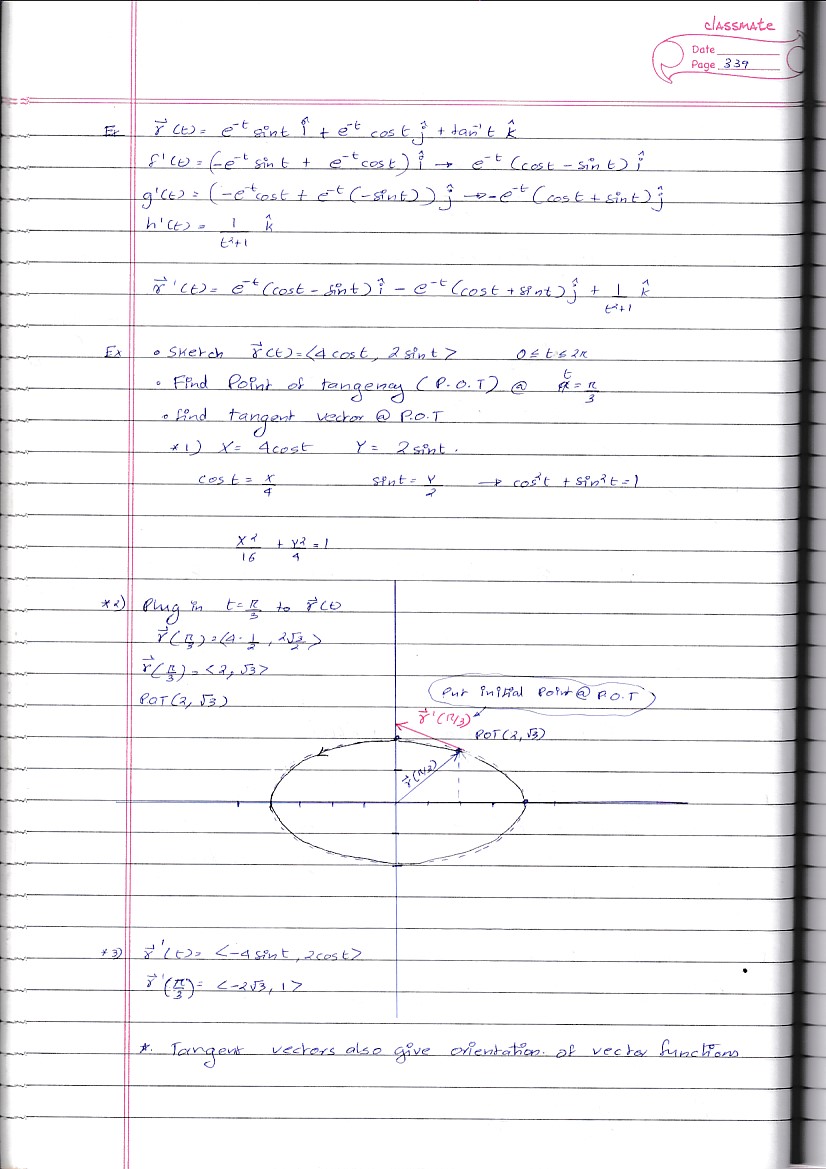 classmate
Date
Page 339
Ex r⃗(t) = e^-t sint î + e^-t cost ĵ + tan^-1 t k̂
f'(t) = (-e^-t sint + e^-t cost) î → e^-t (cost - sint) î
g'(t) = (-e^-t cost + e^-t (-sint)) ĵ → -e^-t (cost + sint) ĵ
h'(t) = 1/(t²+1) k̂
r⃗'(t) = e^-t (cost - sint) î - e^-t (cost + sint) ĵ + 1/(t²+1) k̂
Ex • Sketch r⃗(t) = <4cost, 2sint> 0 ≤ t ≤ 2π
• Find Point of tangency (P.O.T) @ t = π/3
• find tangent vector @ P.O.T
*1) X = 4cost Y = 2sint.
cost = x/4 sint = y/2 → cos²t + sin²t = 1
X²/16 + Y²/4 = 1
*2) Plug in t = π/3 to r⃗(t)
r⃗(π/3) = <4·1/2, 2√3/2>
r⃗(π/3) = <2, √3>
POT(2, √3)
Put initial point @ P.O.T
r⃗'(π/3)
POT(2, √3)
r⃗(π/2)
*3) r⃗'(t) = <-4sint, 2cost>
r⃗'(π/3) = <-2√3, 1>
*. Tangent vectors also give orientation. of vector functions